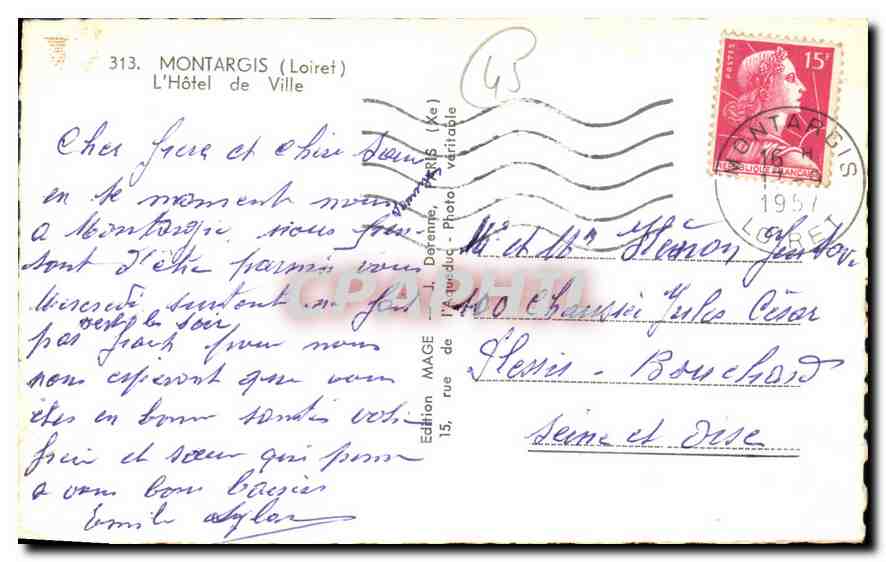 313. MONTARGIS (Loiret)
L'Hôtel de Ville
45
POSTES
15F
REPUBLIQUE FRANÇAISE
MONTARGIS
16 H
1957
LOIRET
Cher frere et chère sœur
en se moment nous
a Montargie nous
sont d'être parmis vous
Mercredi surtout ne fait
vers le soir
pas frait pour nous
nous esperont que vous
êtes en bonne santés votre
frère et sœur qui pense
a vous bons baisers
Emile
Edition MAGE - J. Derenne, PARIS (Xe)
15, rue de l'Aqueduc - Photo véritable
CPAPHIL
Mr et Mm Hénon
100 Chaussée Jules César
Plessis-Bouchard
Seine et Oise